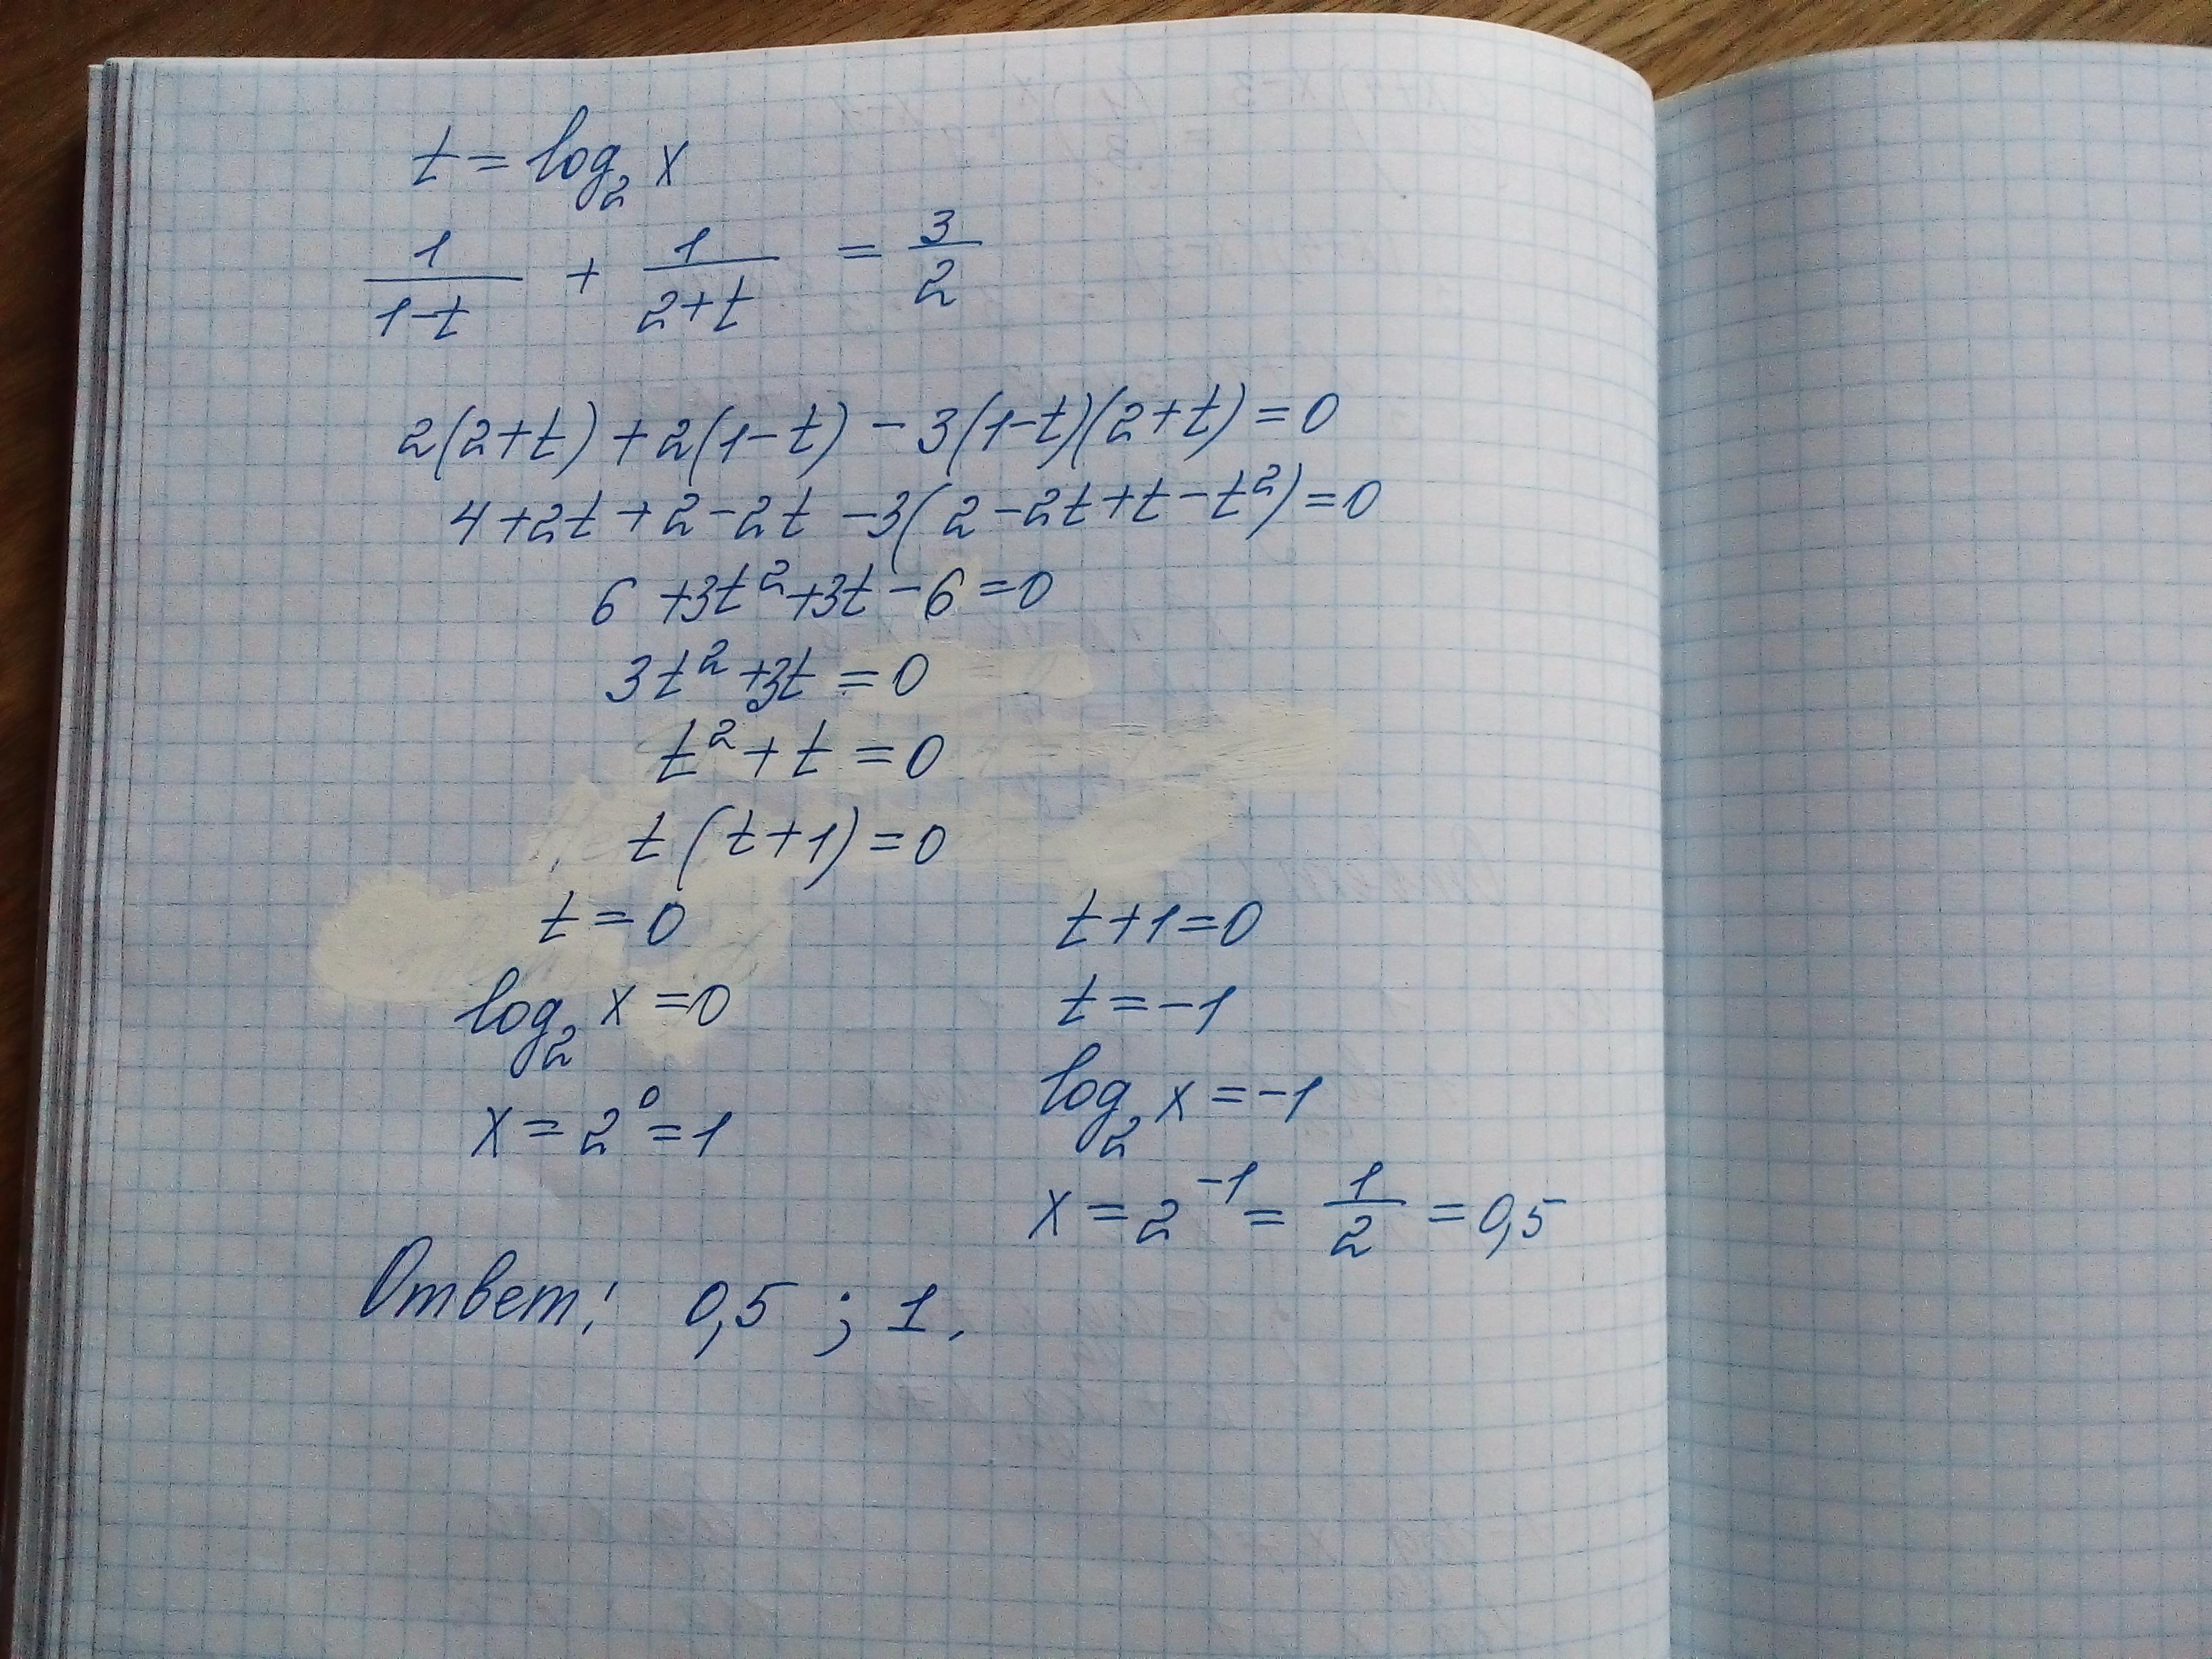 t = log₂ x
1/(1-t) + 1/(2+t) = 3/2
2(2+t) + 2(1-t) - 3(1-t)(2+t) = 0
4+2t+2-2t-3(2-2t+t-t²)=0
6 +3t²+3t-6=0
3t²+3t=0
t²+t=0
t(t+1)=0
t=0 t+1=0
log₂ x=0 t=-1
x=2⁰=1 log₂ x=-1
x=2⁻¹=1/2=0,5
Ответ: 0,5 ; 1.